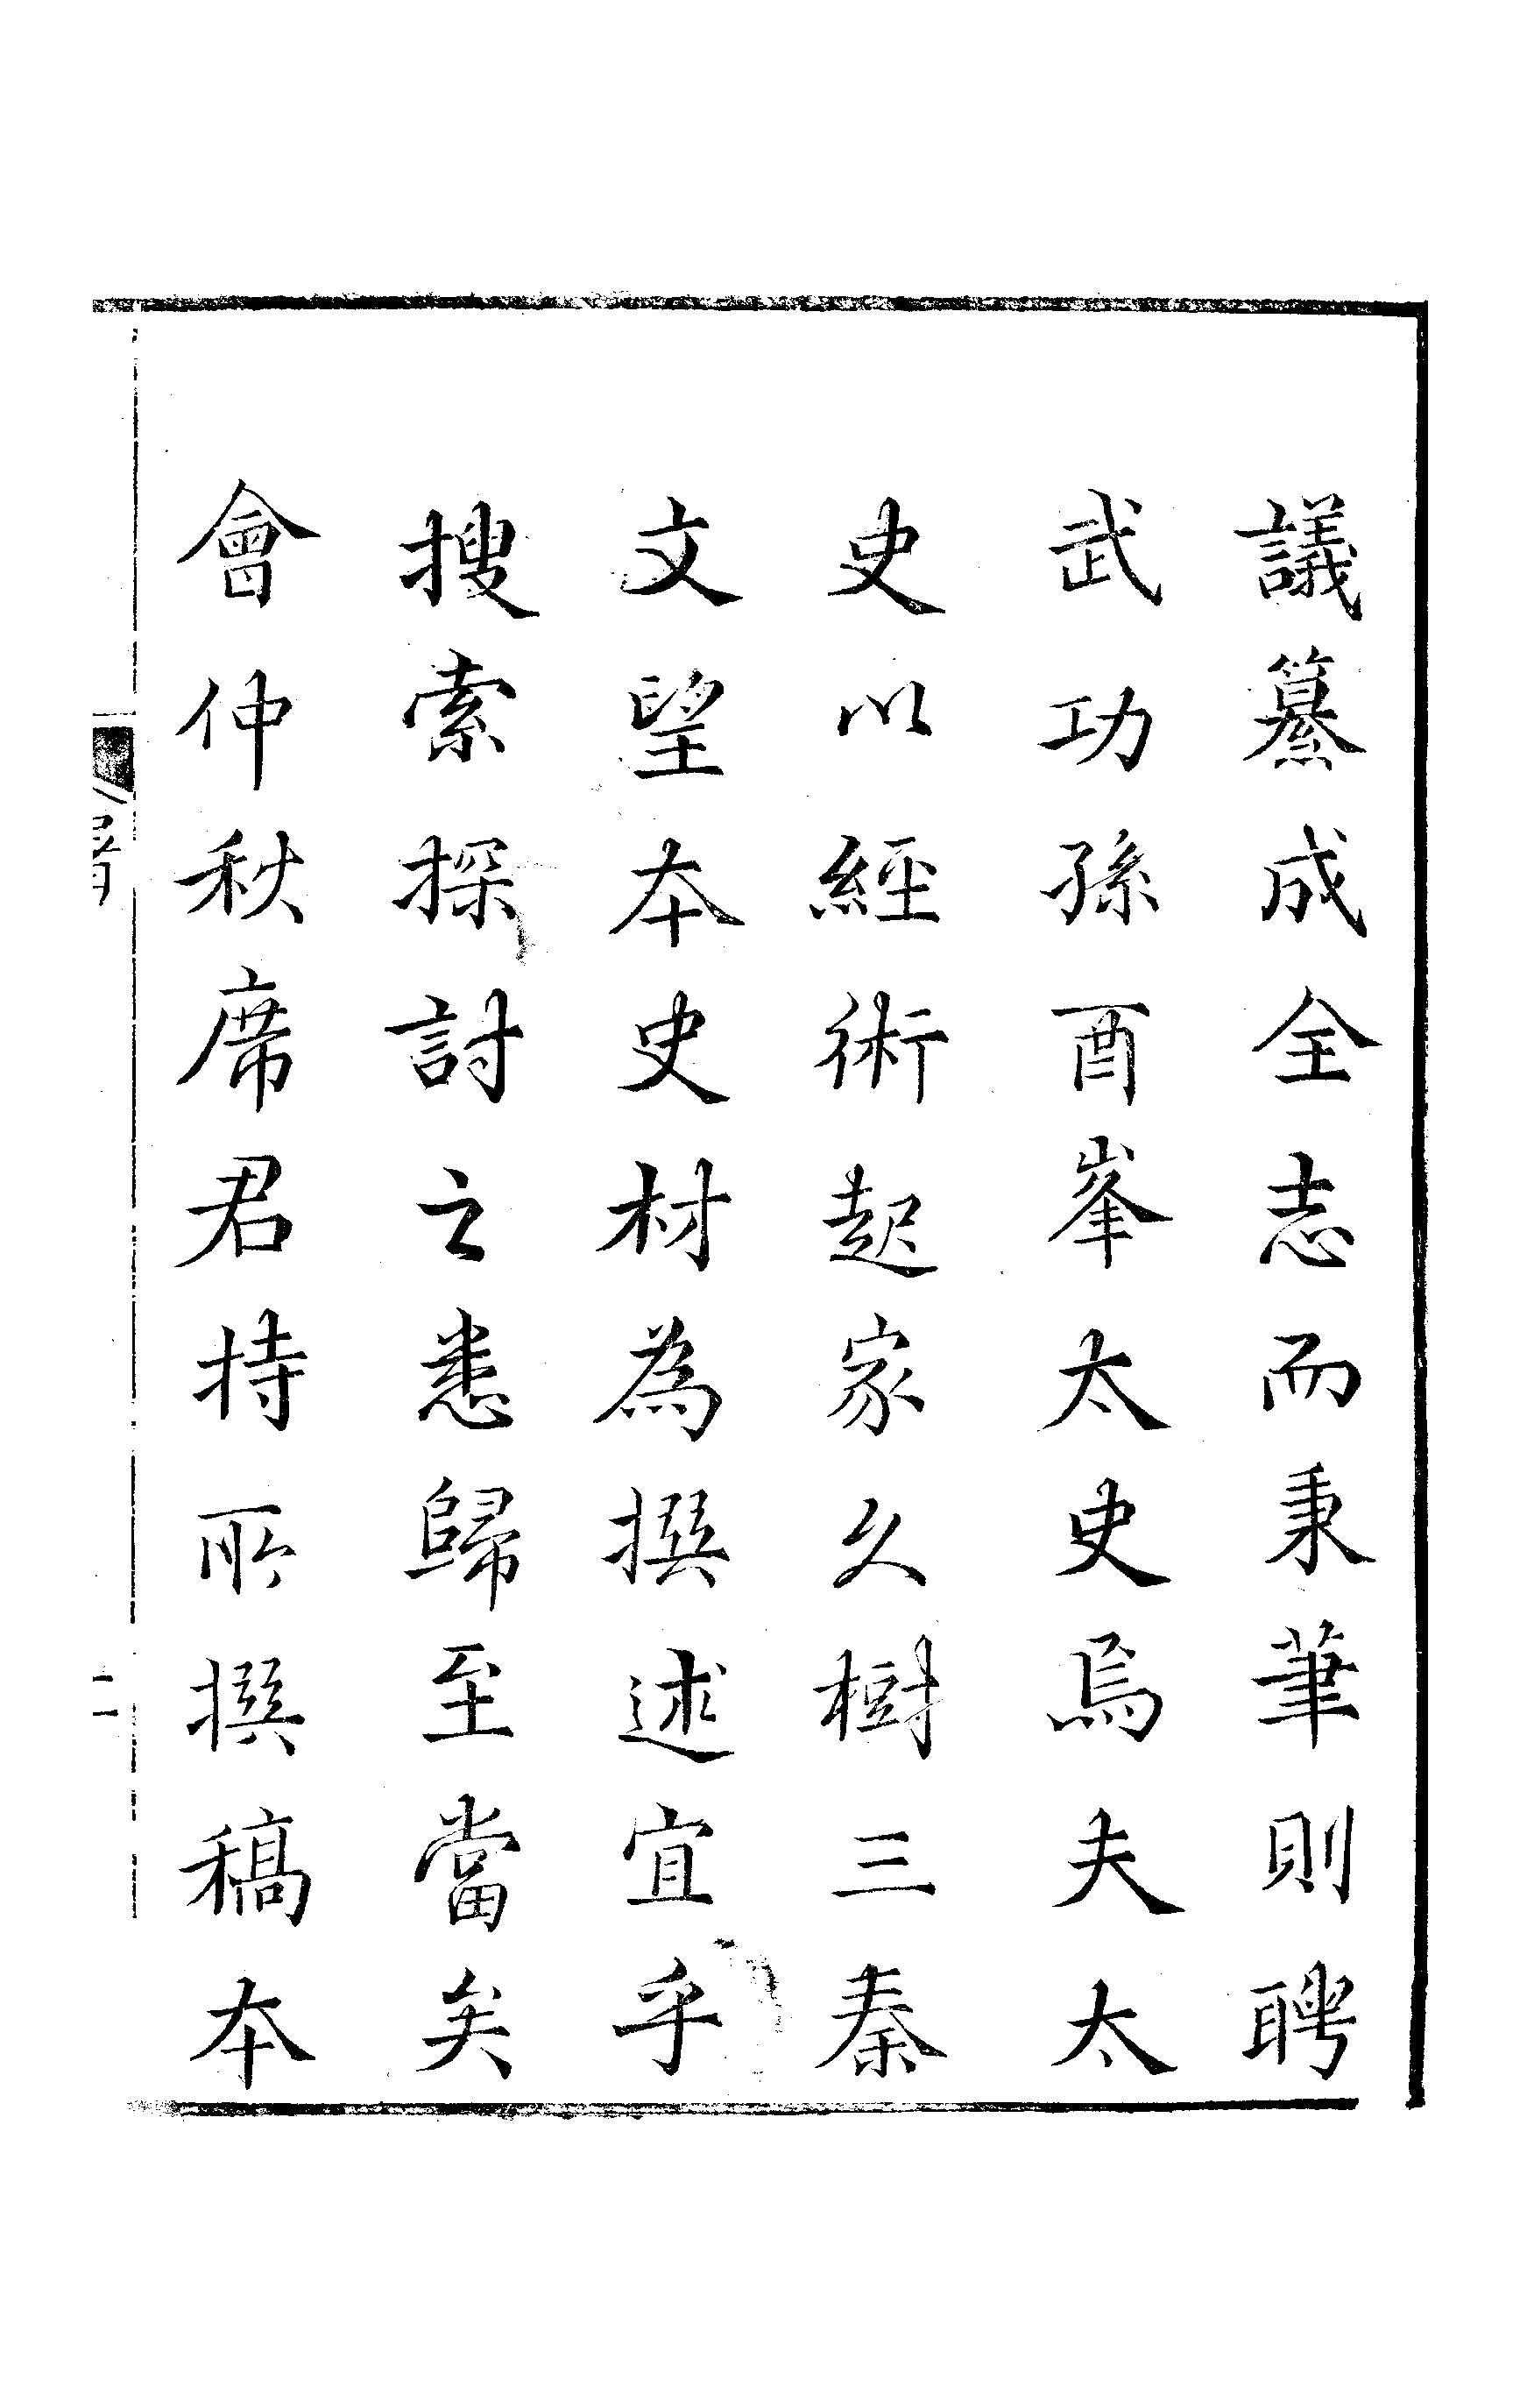 議纂成全志而秉筆則聘
武功孫酉峯太史焉夫太
史以經術起家久樹三秦
文望本史材為撰述宜乎
搜索探討之悉歸至當矣
會仲秋席君持所撰稿本
二